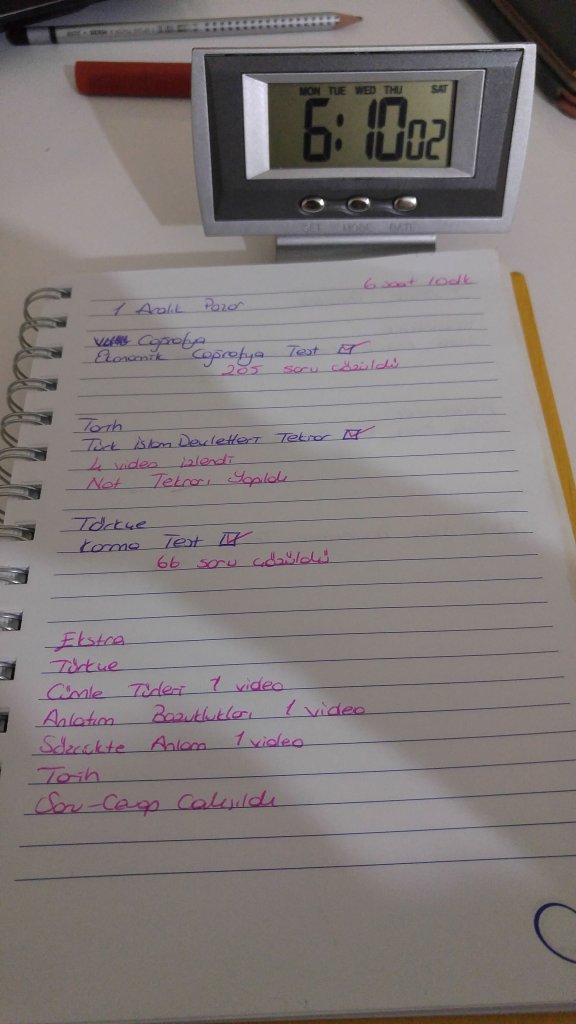 MON TUE WED THU SAT
6:10 02
SET MODE DATE
6 saat 10dk
1 Aralık Pazar
Coğrafya
Ekonomik Coğrafya Test ☑
205 soru çözüldü
Tarih
Türk İslam Devletleri Tekrar ☑
4 video izlendi
Not Tekrarı Yapıldı
Türkçe
Karma Test ☑
66 soru çözüldü
Ekstra
Türkçe
Cümle Türleri 1 video
Anlatım Bozuklukları 1 video
Sözcükte Anlam 1 video
Tarih
Soru-Cevap Çalışıldı